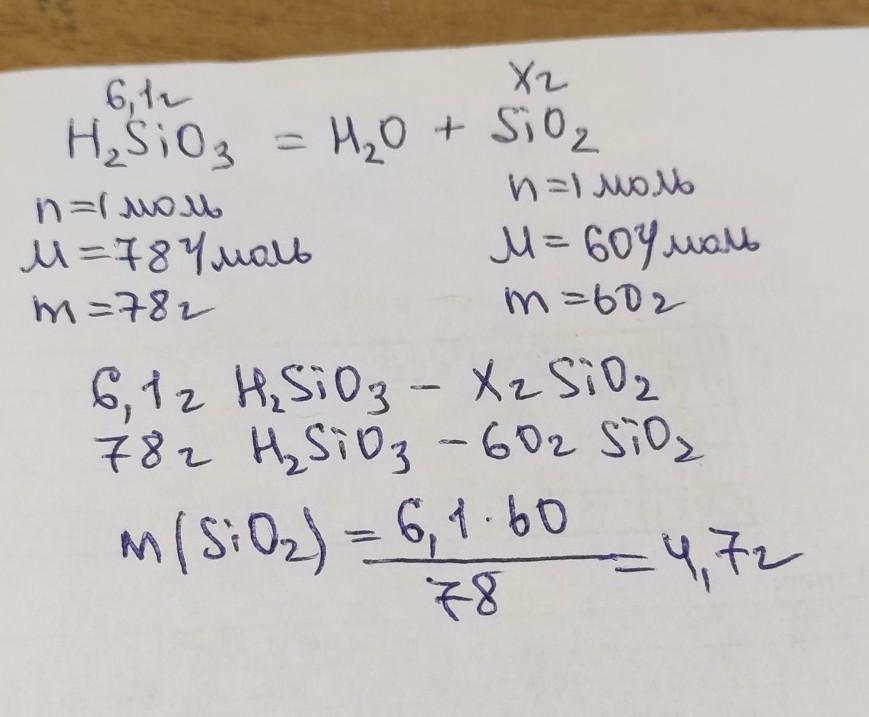 6,1г Xг
H₂SiO₃ = H₂O + SiO₂
n=1 моль n=1 моль
M=78 г/моль M=60 г/моль
m=78г m=60г
6,1г H₂SiO₃ – Xг SiO₂
78г H₂SiO₃ – 60г SiO₂
m(SiO₂) = 6,1·60 / 78 = 4,7г